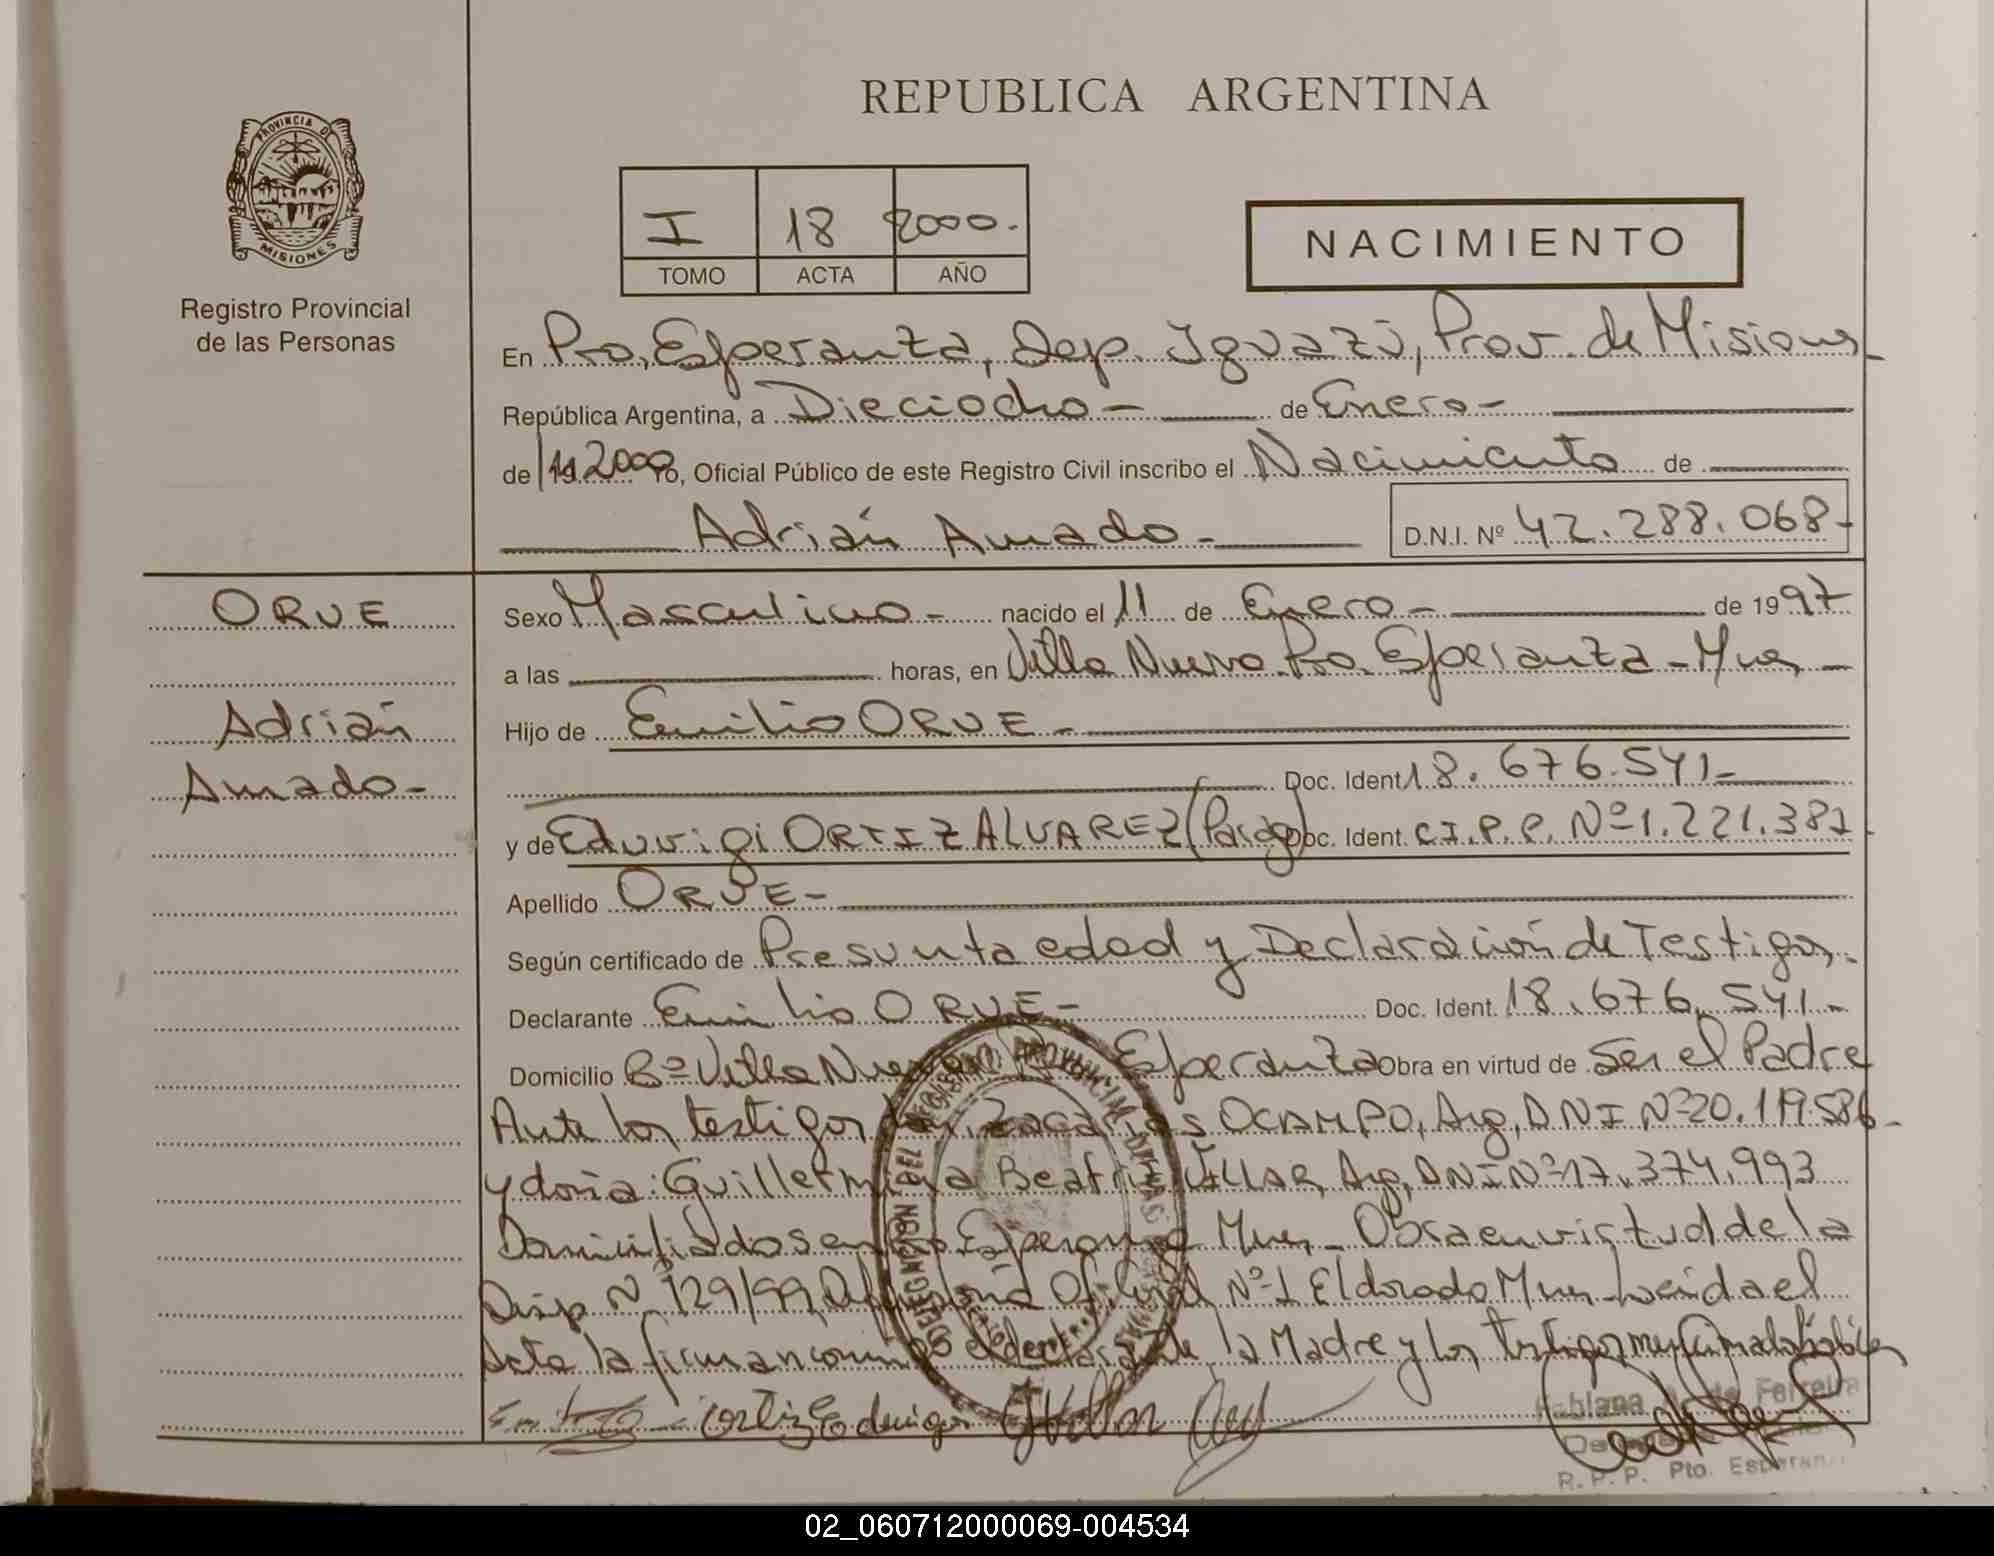 REPUBLICA ARGENTINA
PROVINCIA DE
MISIONES
Registro Provincial
de las Personas
I 18 2000.
TOMO ACTA AÑO
NACIMIENTO
En Pto. Esperanza, Dep. Iguazú, Prov. de Misiones
República Argentina, a Dieciocho - de Enero -
de 19 2000 Yo, Oficial Público de este Registro Civil inscribo el Nacimiento de
Adrián Amado - D.N.I. Nº 42.288.068-
ORUE
Adrián
Amado-
Sexo Masculino - nacido el 11 de Enero - de 1997
a las horas, en Villa Nueva Pto. Esperanza - Mnes
Hijo de Emilio ORUE -
Doc. Ident. 18.676.541-
y de Eduvigi ORTIZ ALVAREZ (Parag) Doc. Ident. C.I.P.P. Nº 1.221.387
Apellido ORUE-
Según certificado de Presunta edad y Declaración de Testigos.
Declarante Emilio ORUE- Doc. Ident. 18.676.541-
Domicilio Bº Villa Nueva Esperanza Obra en virtud de Ser el Padre
Ante los testigos don: Zacarias OCAMPO, Arg. DNI Nº 20.119.586-
y doña: Guillermina Beatriz VILLAR, Arg. DNI Nº 17.374.993
Domiciliados en Pto Esperanza Mnes - Obra en virtud de la
Disp. Nº 129/99 Oficial Nº 1 Eldorado Mnes - Leida el
Acta la firman conmigo el declarante la Madre y los testigos
Ortiz Eduvigi GVillar
Fabiana Ferreira
R. P. P. Pto. Esperanza
02_060712000069-004534